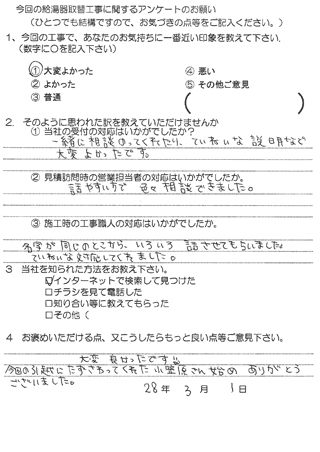 今回の給湯器取替工事に関するアンケートのお願い
(ひとつでも結構ですので、お気づきの点等をご記入ください。)
1、今回の工事で、あなたのお気持ちに一番近い印象を教えて下さい.
(数字に〇を記入下さい)
①大変よかった ④ 悪い
② よかった ⑤ その他ご意見
③ 普通 ( )
2. そのように思われた訳を教えていただけませんか
① 当社の受付の対応はいかがでしたか?
一緒に相談のってくれたり、ていねいな説明など
大変よかったです。
② 見積訪問時の営業担当者の対応はいかがでしたか。
話やすい方で 色々相談できました。
③ 施工時の工事職人の対応はいかがでしたか。
名字が同じのとこから、いろいろ 話させてもらいました。
ていねいな対応してくれました。
3 当社を知られた方法をお教え下さい。
☑インターネットで検索して見つけた
□チラシを見て電話した
□知り合い等に教えてもらった
□その他 (
4 お褒めいただける点、又こうしたらもっと良い点等ご意見下さい。
大変 良かったです
今回の引越にたずさわってくれた 小笠原さん始め ありがとう
ございました。
28年 3月 1日